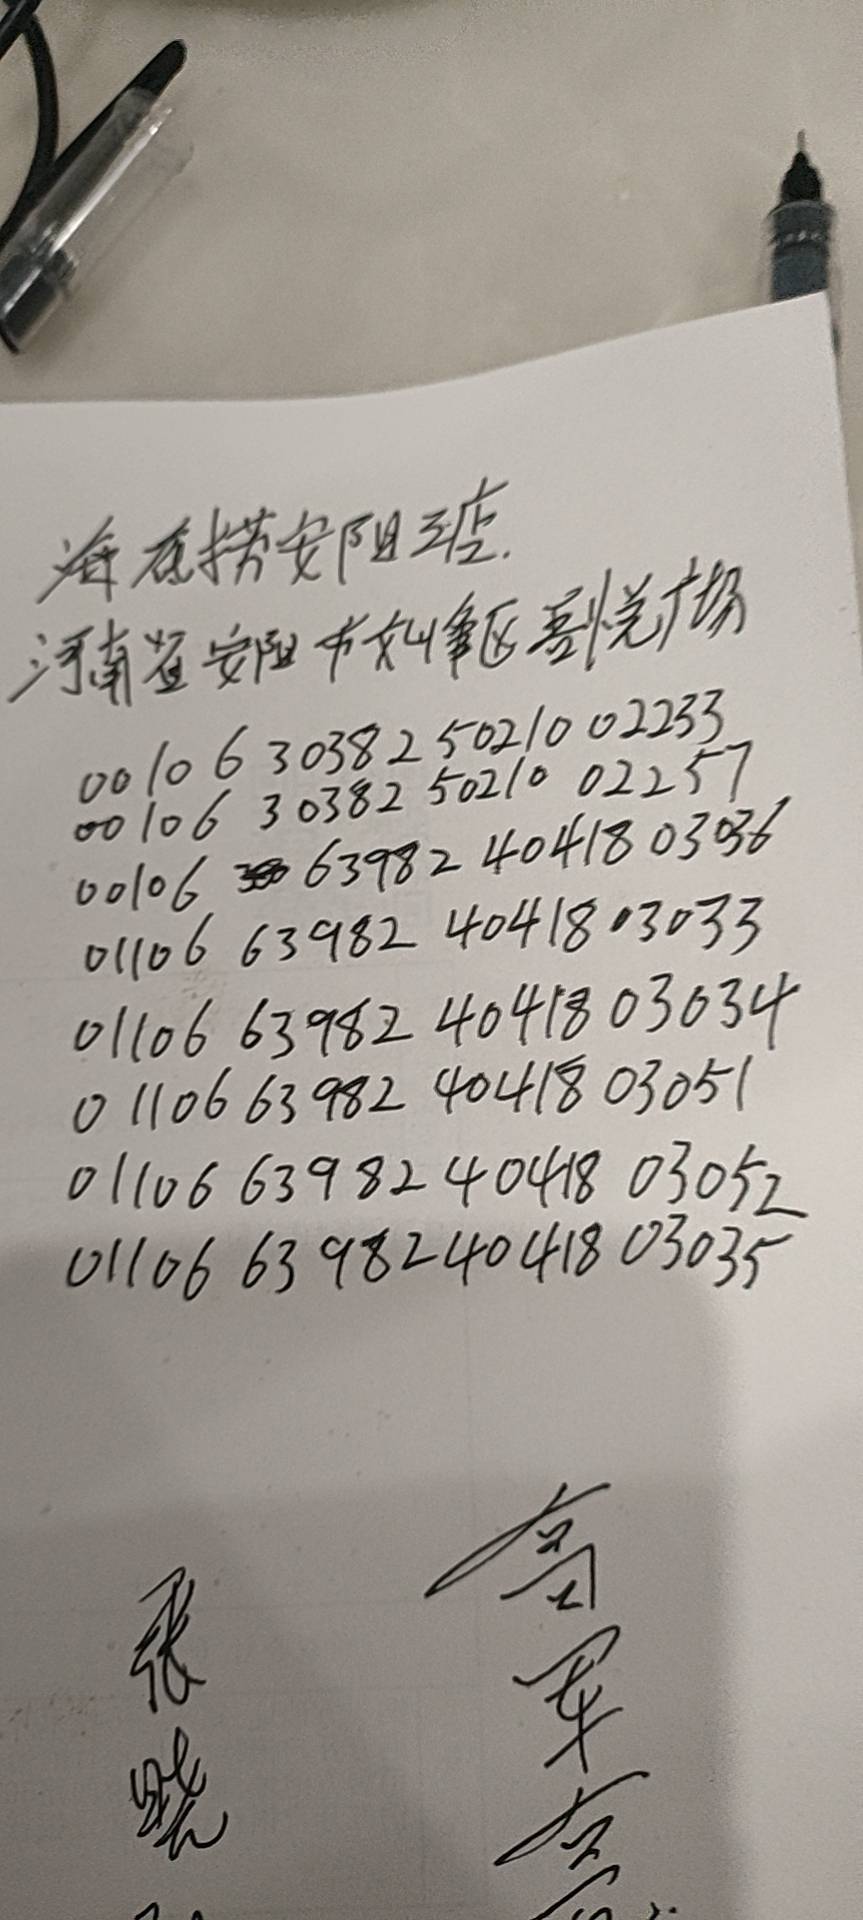 海底捞安阳三店.
河南省安阳市文峰区吾悦广场
00106 30382 50210 02233
00106 30382 50210 02257
00106 63982 40418 03036
01106 63982 40418 03033
01106 63982 40418 03034
01106 63982 40418 03051
01106 63982 40418 03052
01106 63982 40418 03035
高
军
张
晓
高